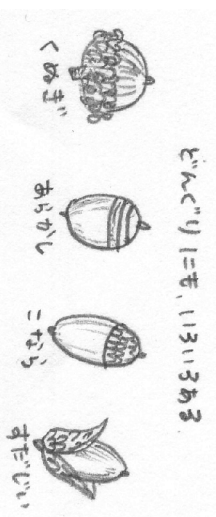 どんぐりにも、いろいろある。
くぬぎ
あらかし
こなら
すだじい